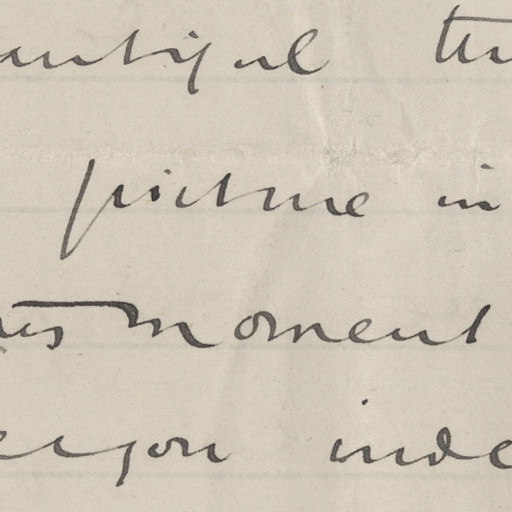 autiful th
picture in
moment
you inde